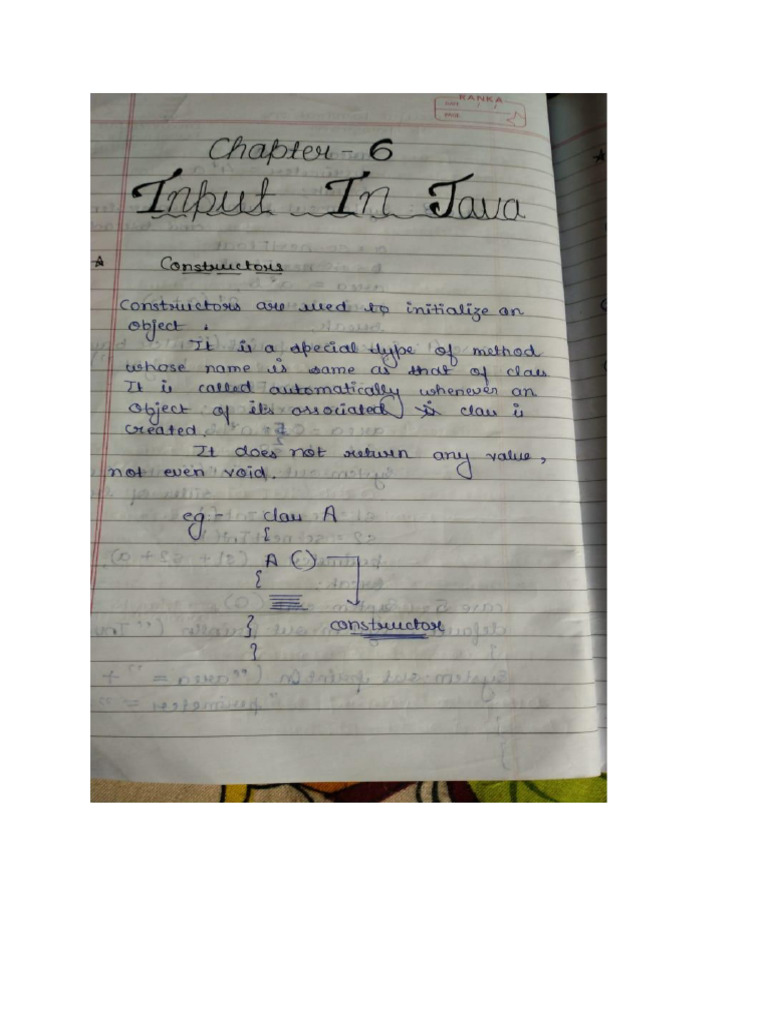 RANKA
Chapter - 6
Input In Java
☆ Constructors
Constructors are used to initialize an
object.
It is a special type of method
whose name is same as that of class
It is called automatically whenever an
object of its associated class is
created.
It does not return any value,
not even void.
eg:- class A
{
A ()
{
constructor
}
}